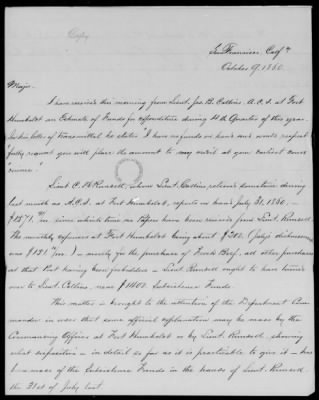 Copy
San Francisco, Calfa
October 9, 1860.
Major.
I have received this morning from Lieut. Jas. B. Collins A.C.S. at Fort
Humboldt an Estimate of Funds for expenditure during 4th Quarter of this year.
In his letter of transmittal he states "I have no funds on hand and would respect
"fully request you will place the amount to my credit at your earliest conve
"nience.
Lieut. Collins relieved sometime during
last month as A.C.S. at Fort Humboldt, reports on hand July 31, 1860.
since which time no Papers have been received from Lieut.
The monthly expenses at Fort Humboldt being about $200. (July's disbursements
was $121 ) mostly for the purchase of Fresh Beef, all other purchases
at that Post having been forbidden Lieut. ought to have turned
over to Lieut. Collins, near $1400. Subsistence Funds.
This matter is brought to the attention of the Department Com
mander in order that some official explanation may be made by the
Commanding Officer at Fort Humboldt or by Lieut. showing
what disposition in detail so far as it is practicable to give it has
been made of the Subsistence Funds in the hands of Lieut.
the 31st of July last.